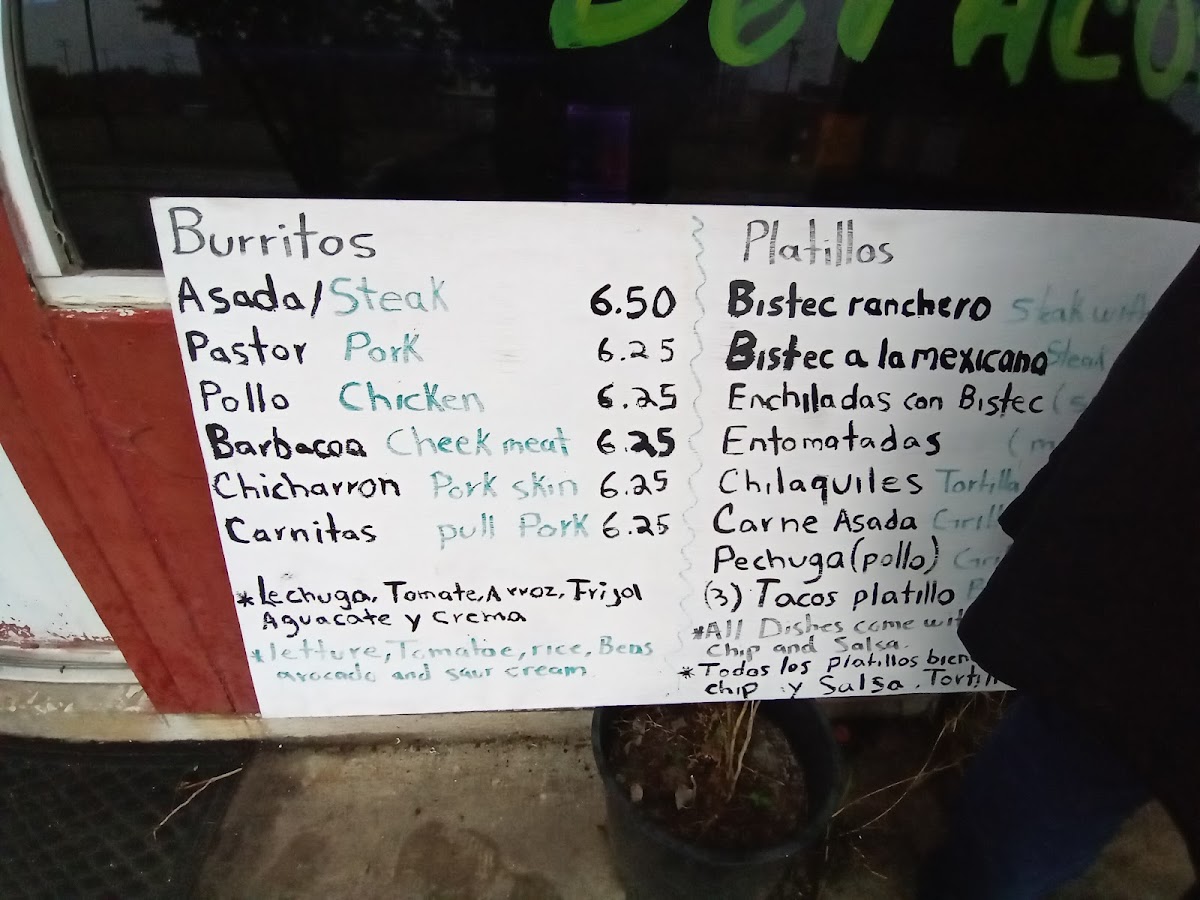 DeTACO
Burritos
Asada/Steak 6.50
Pastor Pork 6.25
Pollo Chicken 6.25
Barbacoa Cheek meat 6.25
Chicharron Pork skin 6.25
Carnitas pull Pork 6.25
*Lechuga, Tomate, Arroz, Frijol
Aguacate y crema
*letture, Tomatoe, rice, Bens
avocado and saur cream
Platillos
Bistec ranchero Steak with
Bistec a la mexicana Steak
Enchiladas con Bistec
Entomatadas
Chilaquiles Tortilla
Carne Asada
Pechuga (pollo)
(3) Tacos platillo
*All Dishes come
chip and Salsa.
*Todos los platillos
chip y Salsa.